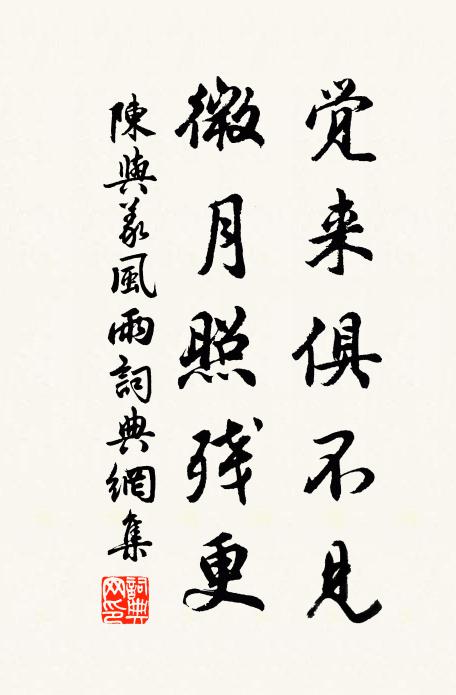 觉来俱不见
微月照残更
陳與义風雨詞典網集
詞典网印